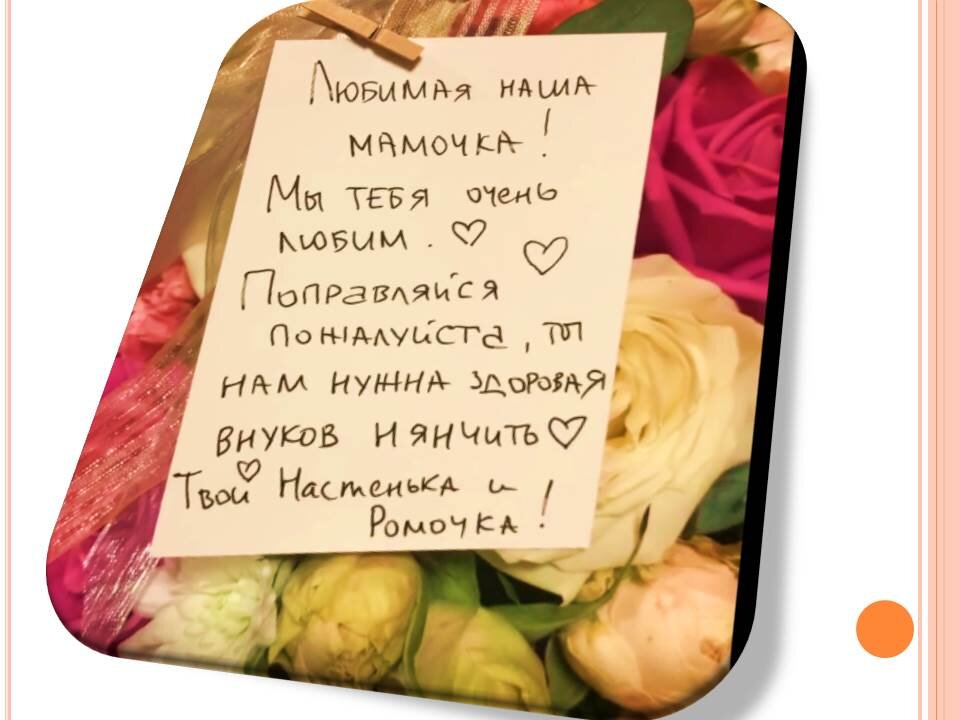 Любимая наша
мамочка!
Мы тебя очень
любим. ♡ ♡
Поправляйся
пожалуйста, ты
нам нужна здоровая
внуков нянчить ♡
Твои ♡ Настенька и
Ромочка!